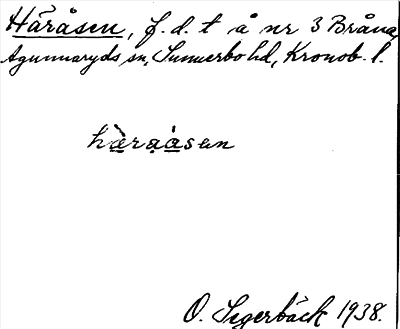 Häråsen, f.d. t å nr 3 Bråna,
Agunnaryds sn, Sunnerbo hd, Kronob. l.
hæ̀rạásen
O. Segerbäck 1938.